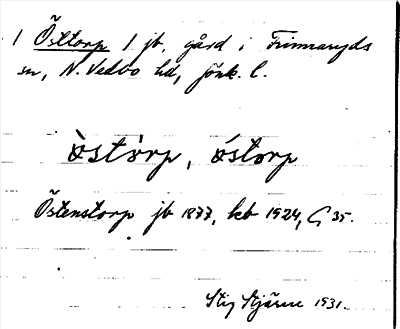 1 Östtorp 1 jb, gård i Finnaryds
sn, N. Vedbo hd, Jönk. l.
ö̀stò̀rp, ǿstorp
Östenstorp jb 1877, kb 1924, G 35.
Stig Stjärne 1931.